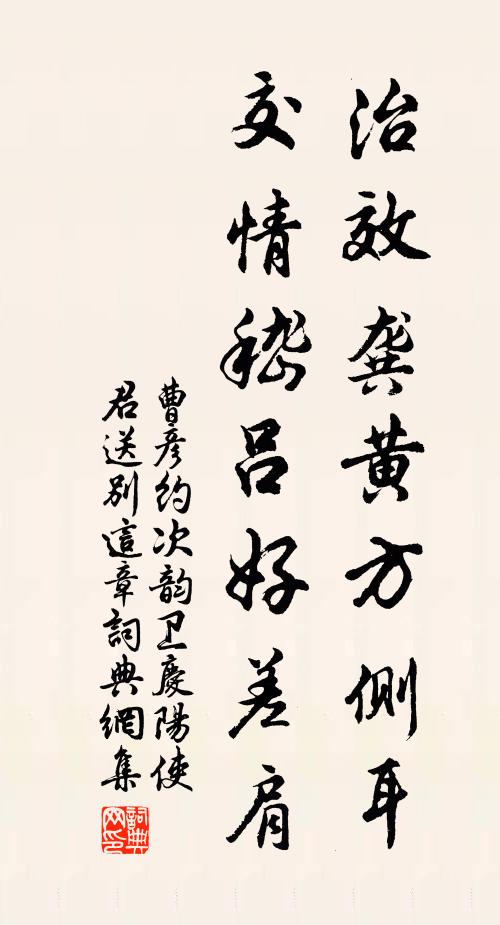 治效龚黄方侧耳
交情嵇吕好差肩
曹彦约次韵卫慶陽使
君送别這章詞典網集
詞典網印